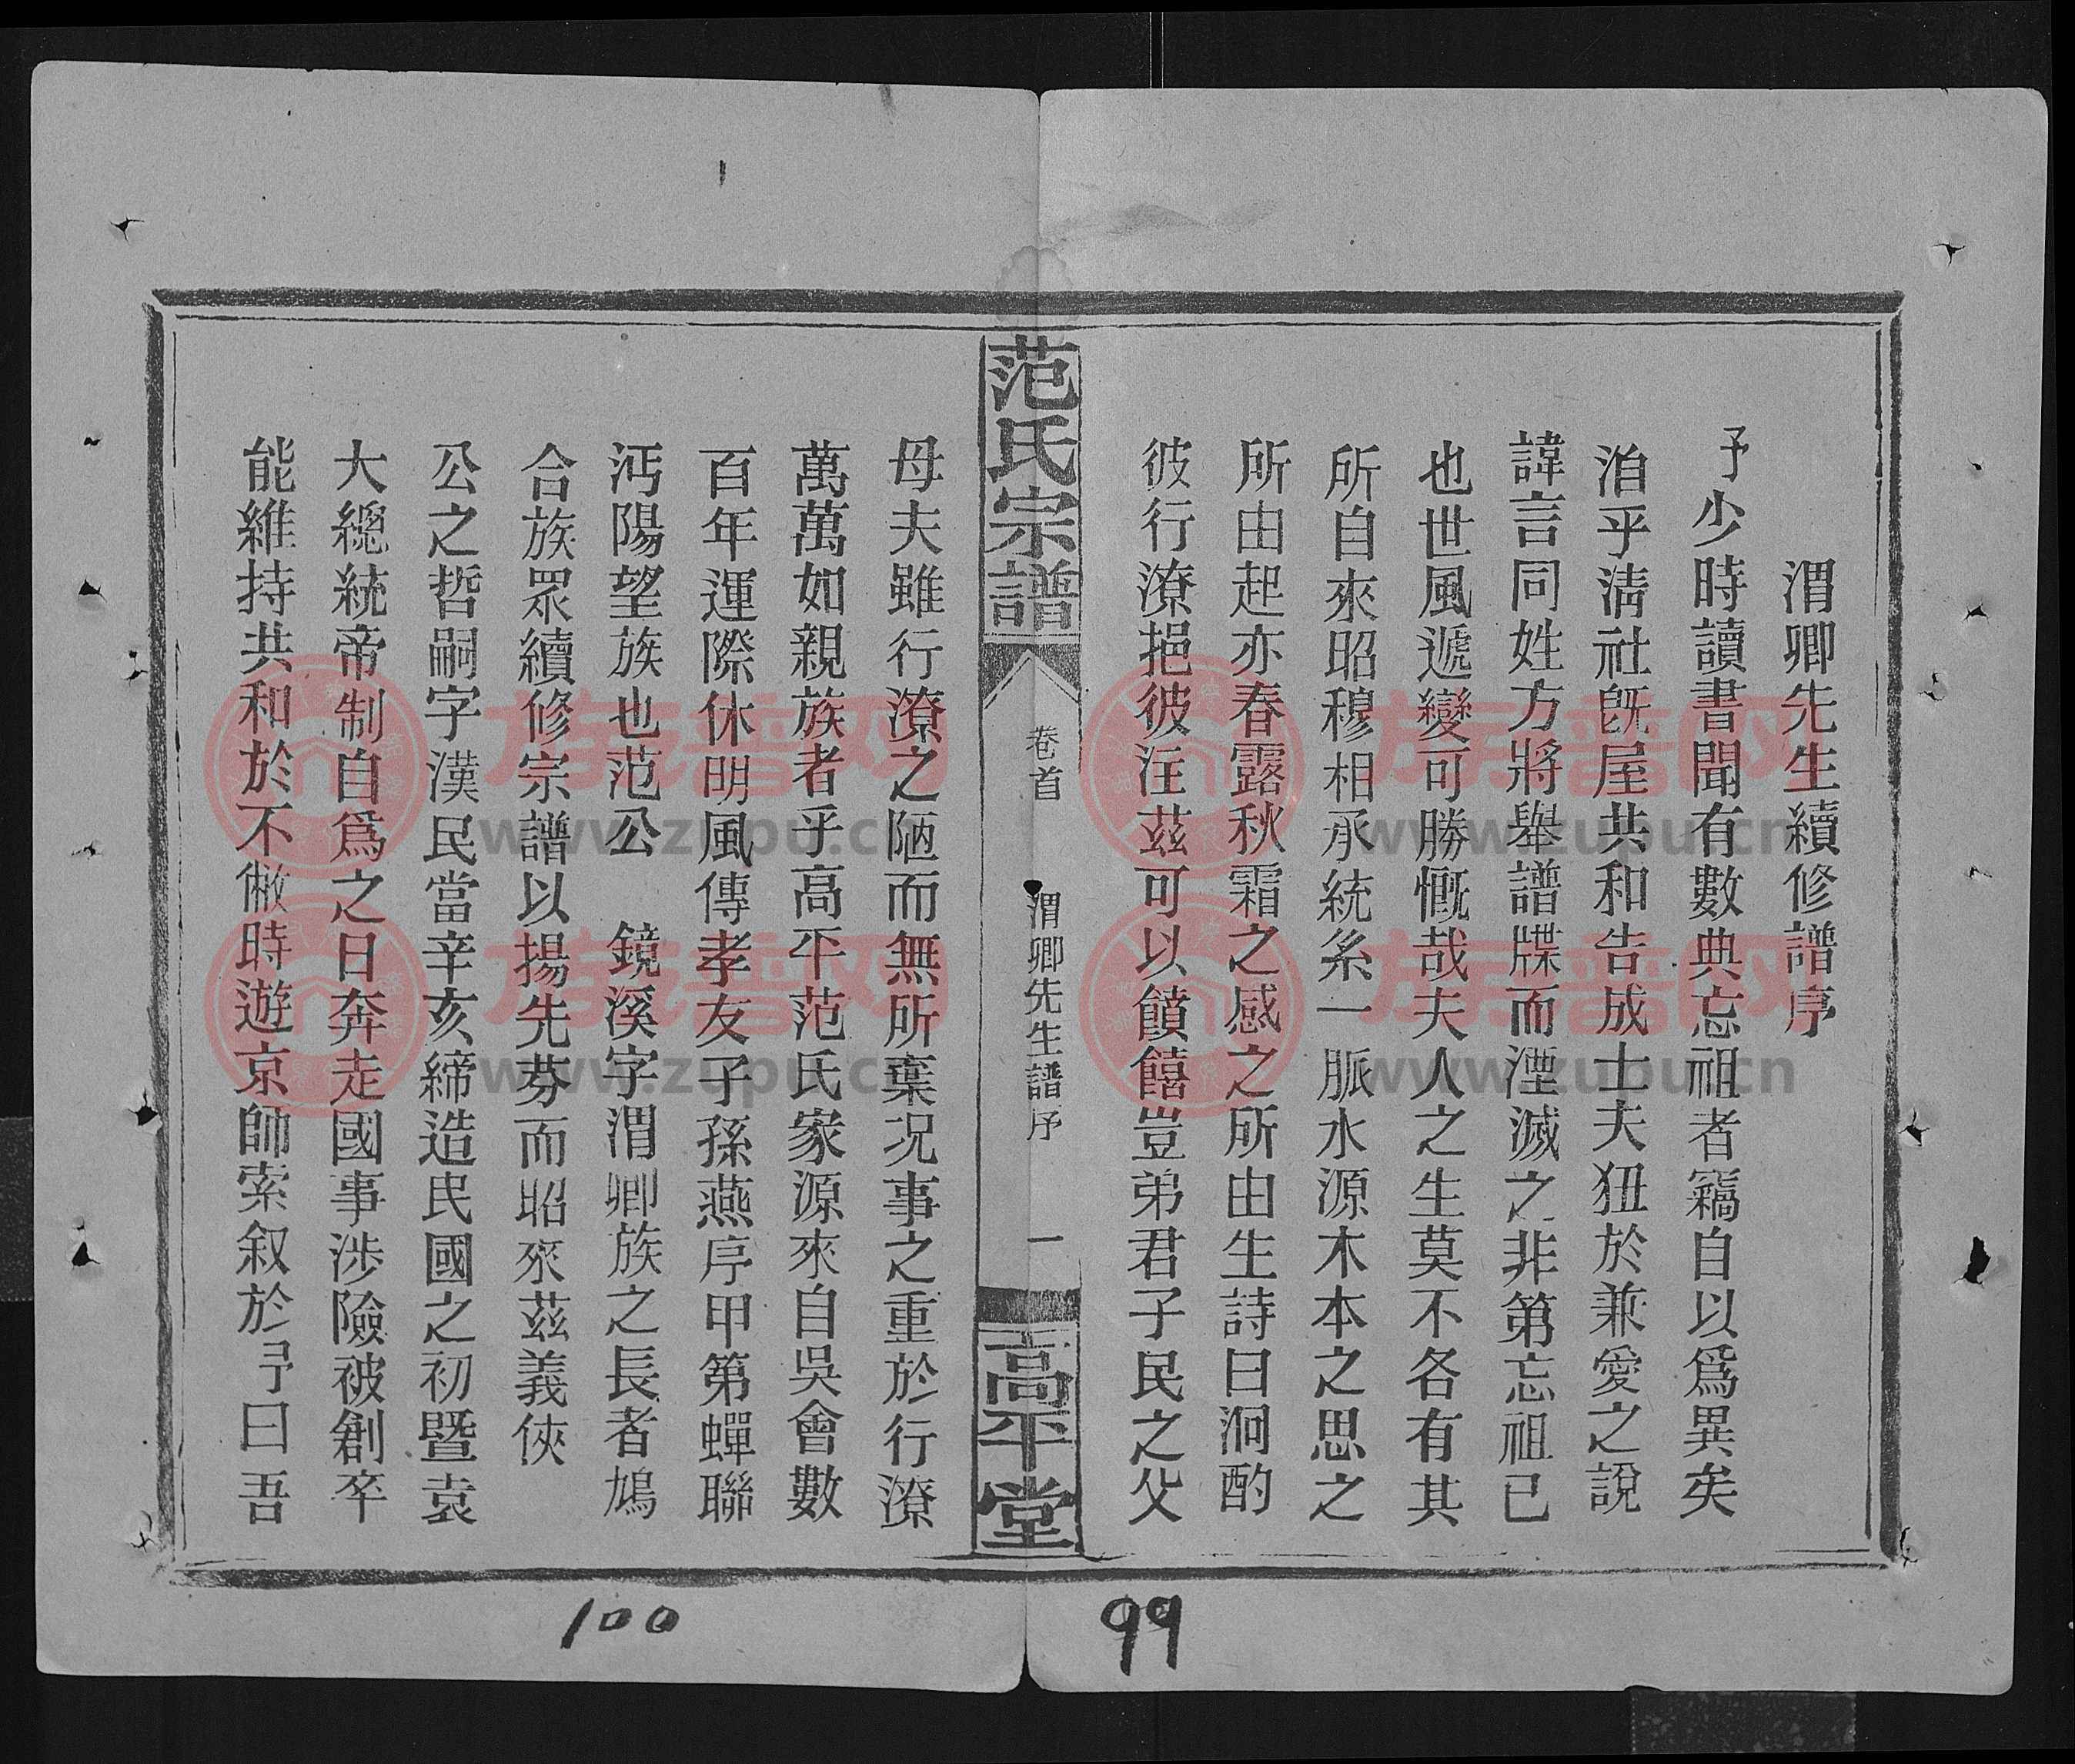 渭卿先生續修譜序
予少時讀書聞有數典忘祖者竊自以爲異矣
洎乎淸社旣屋共和告成士夫狃於兼愛之說
諱言同姓方將舉譜牒而湮滅之非第忘祖已
也世風遞變可勝慨哉夫人之生莫不各有其
所自來昭穆相承統系一脈水源木本之思之
所由起亦春露秋霜之感之所由生詩曰泂酌
彼行潦挹彼注茲可以餴饎豈弟君子民之父
范氏宗譜
卷首
渭卿先生譜序
一
高平堂
母夫雖行潦之陋而無所棄况事之重於行潦
萬萬如親族者乎高平范氏家源來自吳會數
百年運際休明風傳孝友子孫燕序甲第蟬聯
沔陽望族也范公 鏡溪字渭卿族之長者鳩
合族眾續修宗譜以揚先芬而昭來茲義俠
公之哲嗣字漢民當辛亥締造民國之初暨袁
大總統帝制自爲之日奔走國事涉險被創卒
能維持共和於不敝時遊京師索叙於予曰吾
100
99
族譜网
www.zupu.cn
族譜网
www.zupu.cn
族譜网
www.zupu.cn
族譜网
www.zupu.cn